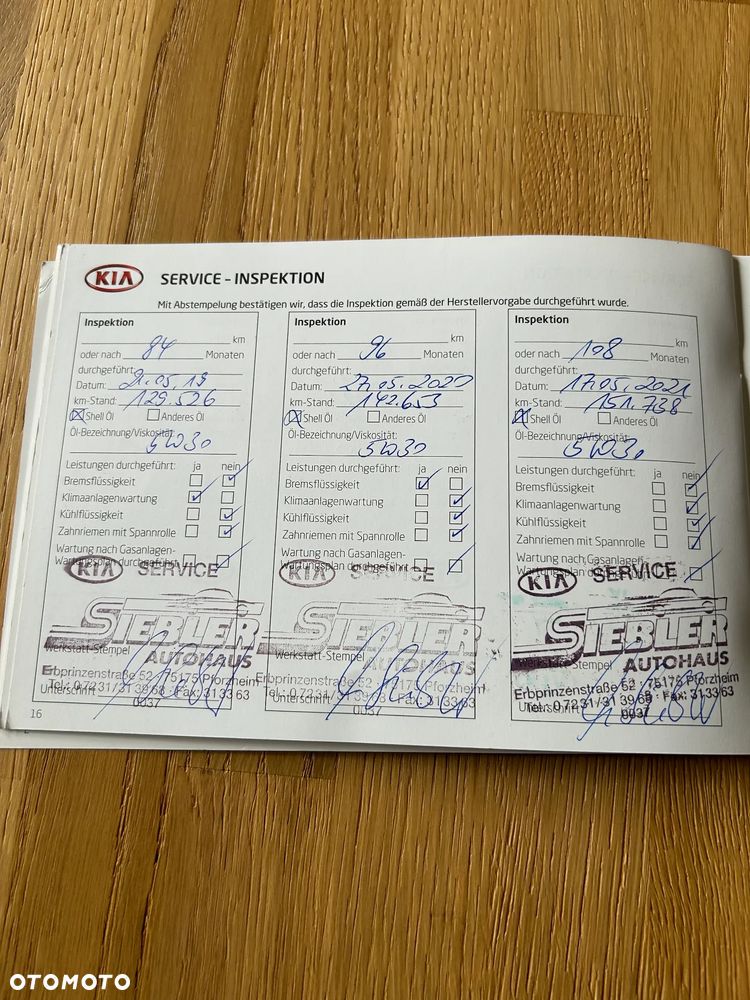 KIA SERVICE - INSPEKTION
Mit Abstempelung bestätigen wir, dass die Inspektion gemäß der Herstellervorgabe durchgeführt wurde.
Inspektion
km
oder nach 84 Monaten
durchgeführt:
Datum: 21.05.19
km-Stand: 129.526
Shell Öl Anderes Öl
Öl-Bezeichnung/Viskosität:
5W30
Leistungen durchgeführt: ja nein
Bremsflüssigkeit
Klimaanlagenwartung
Kühlflüssigkeit
Zahnriemen mit Spannrolle
Wartung nach Gasanlagen-
Wartungsplan durchgeführt
KIA SERVICE
SIEBLER
AUTOHAUS
Werkstatt-Stempel
Erbprinzenstraße 52 · 75175 Pforzheim
Tel.: 07231/313968 · Fax: 313363
Unterschrift 0037
Inspektion
km
oder nach 96 Monaten
durchgeführt:
Datum: 27.05.2020
km-Stand: 142.653
Shell Öl Anderes Öl
Öl-Bezeichnung/Viskosität:
5W30
Leistungen durchgeführt: ja nein
Bremsflüssigkeit
Klimaanlagenwartung
Kühlflüssigkeit
Zahnriemen mit Spannrolle
Wartung nach Gasanlagen-
Wartungsplan durchgeführt
KIA SERVICE
SIEBLER
AUTOHAUS
Werkstatt-Stempel
Erbprinzenstraße 52 · 75175 Pforzheim
Tel.: 07231/313968 · Fax: 313363
Unterschrift 0037
Inspektion
km
oder nach 108 Monaten
durchgeführt:
Datum: 17.05.2021
km-Stand: 151.738
Shell Öl Anderes Öl
Öl-Bezeichnung/Viskosität:
5W30
Leistungen durchgeführt: ja nein
Bremsflüssigkeit
Klimaanlagenwartung
Kühlflüssigkeit
Zahnriemen mit Spannrolle
Wartung nach Gasanlagen-
Wartungsplan
KIA SERVICE
SIEBLER
AUTOHAUS
Stempel
Erbprinzenstraße 52 · 75175 Pforzheim
Tel.: 07231/313968 · Fax: 313363
Unterschrift 0037
16
OTOMOTO